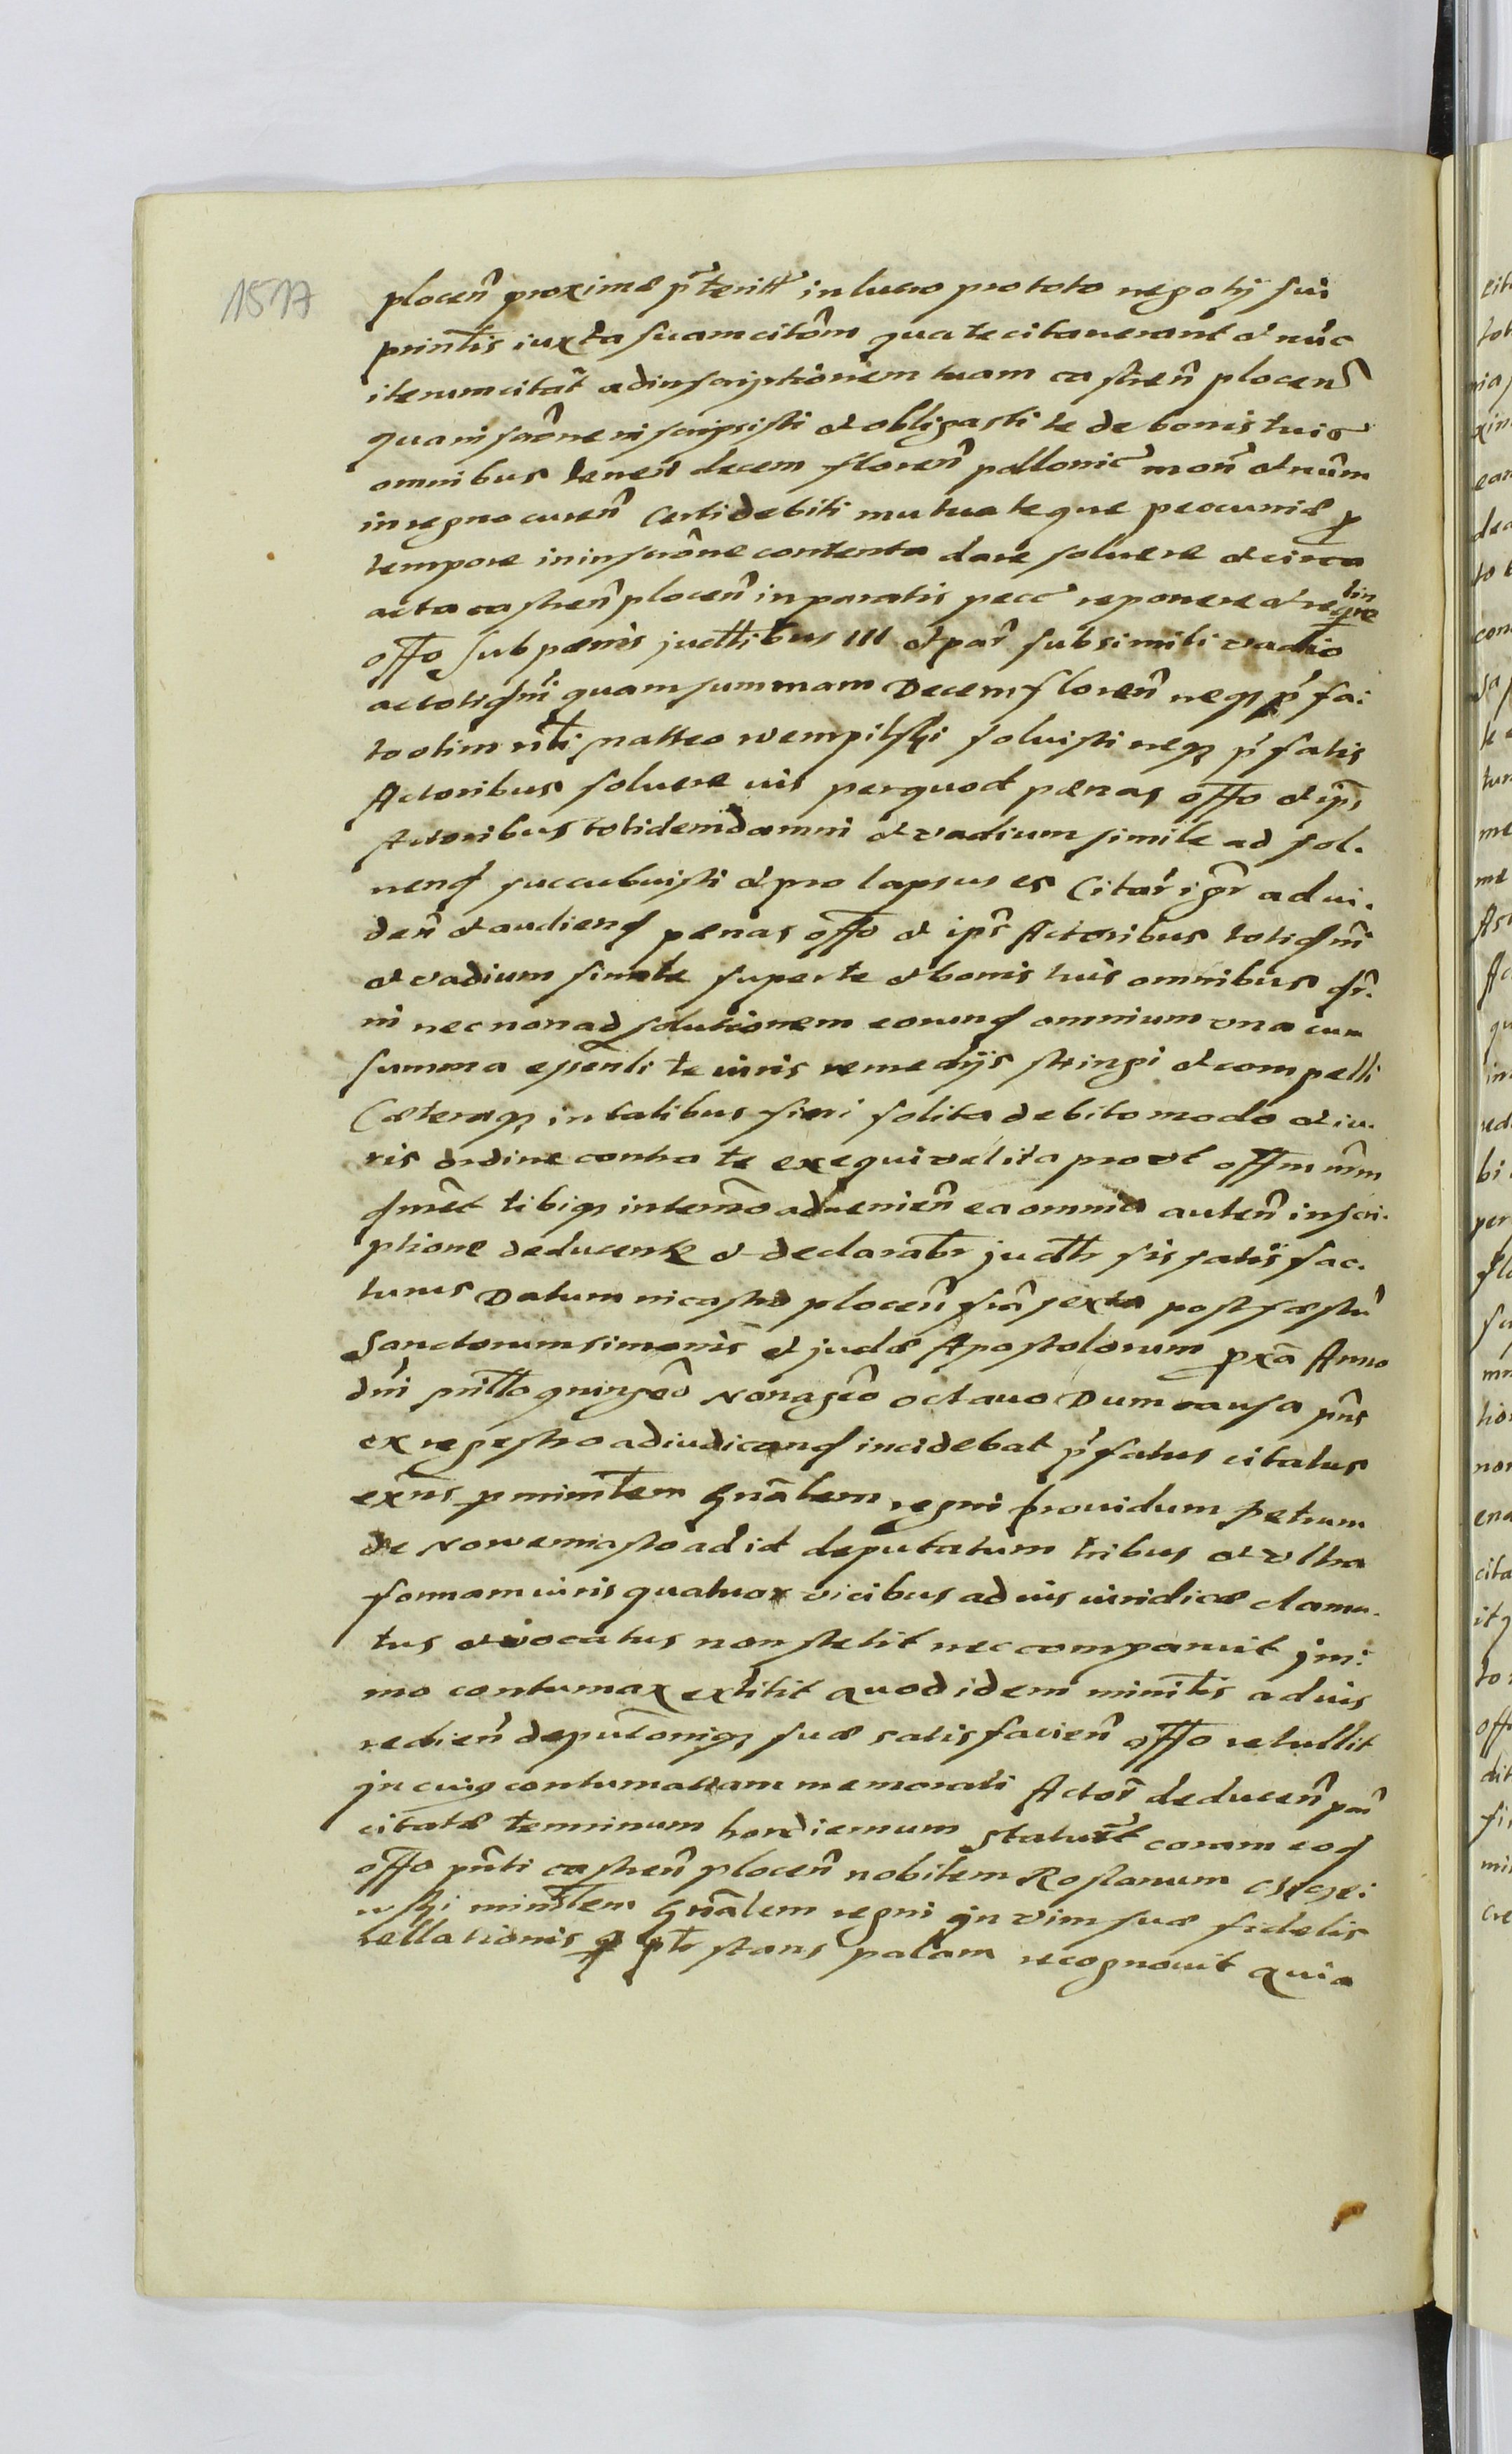 1517
plocen̄ proximæ p̄teritt in lucro pro toto negotÿ sui
printis iuxta suam citōm qua te citauerant et nūc
iterum citāt ad inscriptionem tuam castren̄ plocen̄
qua inscrōne inscripsisti et obligasti te de bonis tuis
omnibus tenerī decem floren̄ pollonic̄ mon̄ et nūm
in regno curen̄ Certi debiti mutuateque peocuniæ p
tempore in inscrōne contenta dare soluere et circa
acta castren̄ plocen̄ in paratis pecc̄ reponere et
offo sub pænis judttibus III et par̄ sub simili vadio
ac totiḍ quam summam Decem floren̄ neq p̄fa:
to olim nti matteo wempilski soluisti neq p̄fatis
Actoribus soluere uis per quod pænas offo et ip̄s
Actoribus totidem damni et vadium simile ad sol.
uend succubuisti et pro lapsus es Citar̄ igr̄ ad ui.
den̄ et audiend pænas offo et ip̄s Actoribus
et vadium simile super te et bonis tuis omnibus
ni nec non ad solutionem eorund omnium vna cum
summa essenti te iuris remedÿs stringi et compelli
Cæteraq in talibus fieri solita debito modo et iu.
ris ordine contra te exequi velita prout offm nrm
tibiq in termō aduenien̄ ea omnia auten̄ inscri.
ptione deducente et declarabr judtr sis satis fac.
turus Datum in castro plocen̄ fria sexta post festū
Sanctorum simonis et judæ Apostolorum pxā Anno
dn̄i millo quingēō Nonagēō octauo Dum causa pn̄s
ex regestro adiudicand incidebat p̄fatus citatus
exn̄s p minitem Gnālem regni prouidum petrum
de Nowemiasto ad id deputatum tribus et vltra
formam iuris quatuor vicibus ad ius iuridicæ clama.
tus et vocatus non stetit nec comparuit jm:
mo contumax extitit quod idem minitis ad uis
redien̄ deputōniq suæ satisfacien̄ offo retullit
jn cuiq contumatiam memorati Actor̄ deducen̄
citatæ terminum hordiernum statuit coram eod
offo pn̄ti castren̄ plocen̄ nobilem Rostanum
minitem Gnālem regni jn vim suæ fidelis
rellationis stans palam recognouit quia